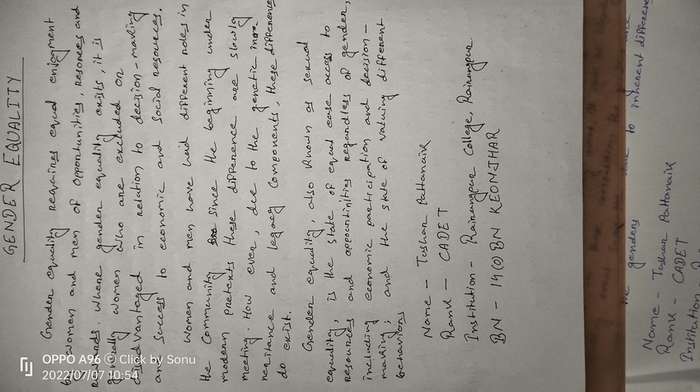 GENDER EQUALITY
Gender equality requires equal enjoyment
by women and men of opportunities, resources and
rewards. Where gender equality exists, it is
generally women who are excluded or
disadvantaged in relation to decision-making
and success to economic and social resources.
Women and men have had different roles in
the community since the beginning under
modern pretexts these difference are slowly
meeting. How ever, due to the genetic
neritance and legacy components, these difference
do exist.
Gender equality, also known as sexual
equality, is the state of equal ease access to
resources and opportunities regardless of gender,
including economic participation and decision-
making; and the state of valuing different
behaviours
Name - Tushar Pattanaik
Rank - CADET
Institution - Rairangpur College, Rairangpur
BN - 19(O) BN KEONJHAR
the genders due to inherent difference
Name - Tushar Pattanaik
Rank - CADET
Institution -
OPPO A96 Click by Sonu
2022/07/07 10:54